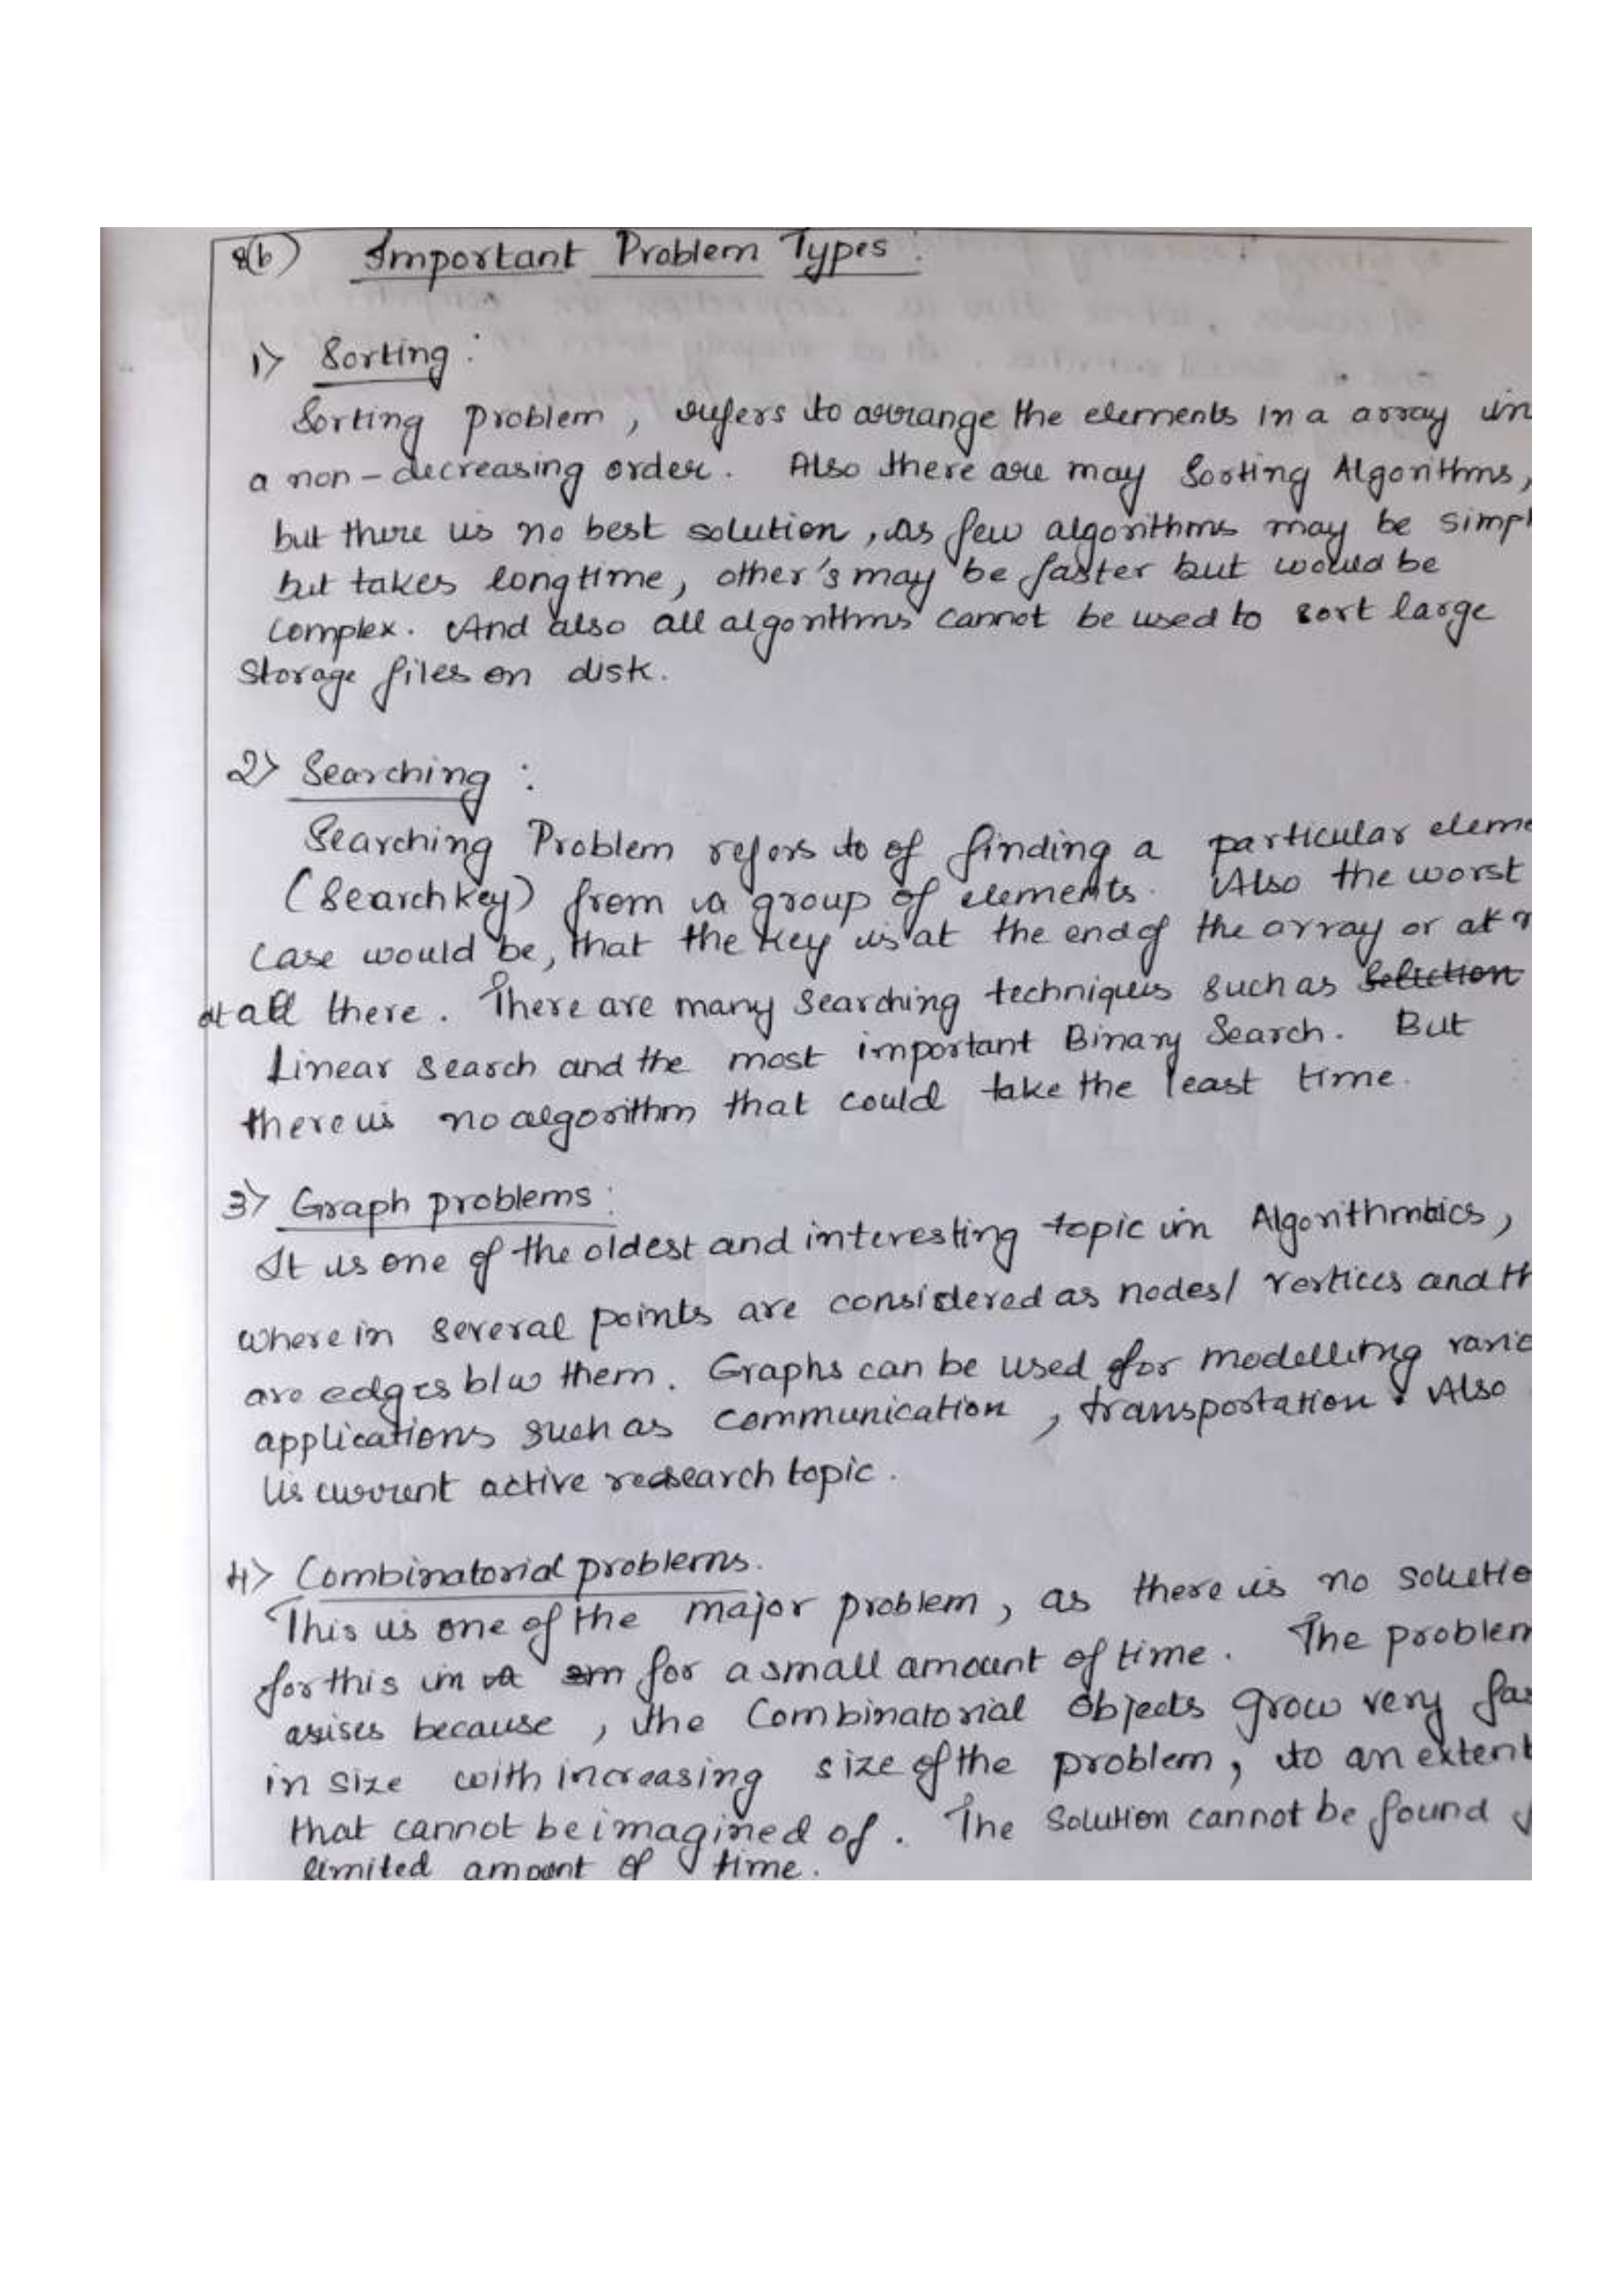 2(b) Important Problem Types :
1) Sorting :
Sorting problem , refers to arrange the elements in a array in
a non-decreasing order. Also there are may Sorting Algorithms,
but there is no best solution , as few algorithms may be simpl
but takes long time, other's may be faster but would be
complex. And also all algorithms cannot be used to sort large
Storage files on disk.
2) Searching :
Searching Problem refers to of finding a particular eleme
(Search key) from a group of elements. Also the worst
case would be, that the key is at the end of the array or at n
at all there. There are many searching techniques such as Selection
Linear search and the most important Binary Search. But
there is no algorithm that could take the least time.
3) Graph problems :
It is one of the oldest and interesting topic in Algorithmics,
where in several points are considered as nodes/ vertices and th
are edges b/w them. Graphs can be used for modelling vario
applications such as communication , transportation. Also
is current active research topic.
4) Combinatorial problems.
This is one of the major problem, as there is no solutio
for this in a sm for a small amount of time. The problem
arises because , the Combinatorial Objects grow very fas
in size with increasing size of the problem, to an extent
that cannot be imagined of. The Solution cannot be found
limited amount of time.